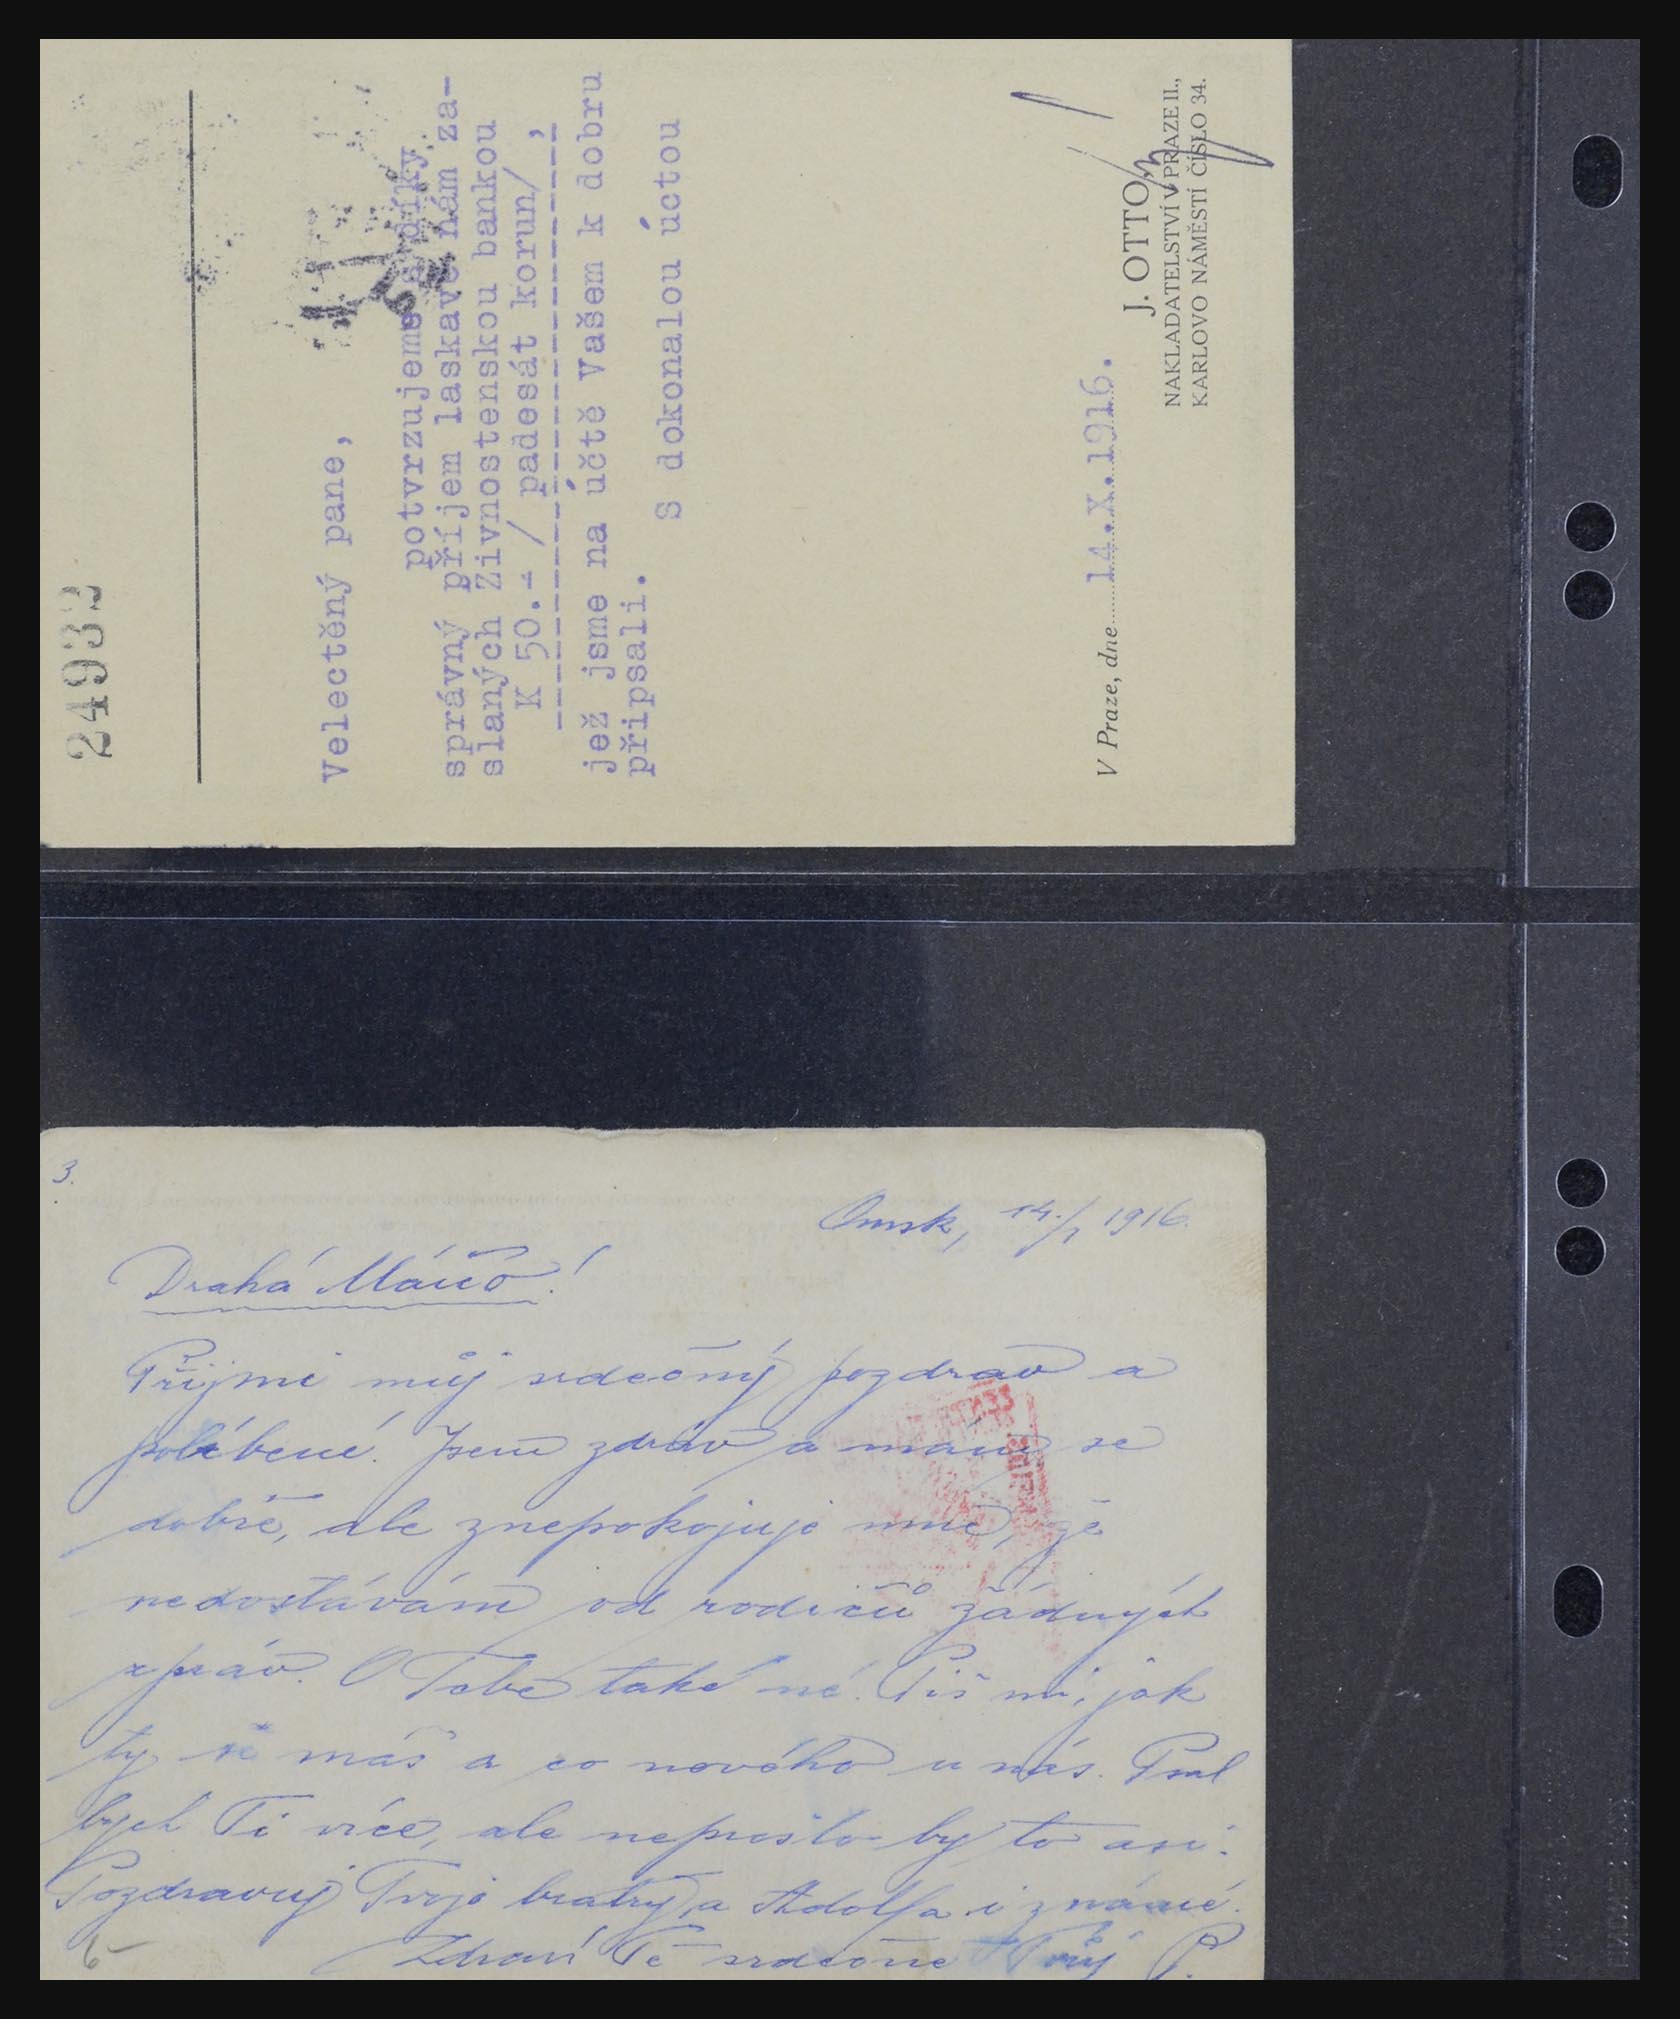 24932
Velectěný pane,
potvrzujeme s díky
správný příjem laskavě nám za-
slaných Živnostenskou bankou
K 50.- / padesát korun/ ,
jež jsme na účtě Vašem k dobru
připsali.
S dokonalou úctou
V Praze, dne 14.X.1916.
J. OTTO,
NAKLADATELSTVÍ V PRAZE II.,
KARLOVO NÁMĚSTÍ ČÍSLO 34.
3.
Omsk, 14./I 1916.
Drahá Máňo!
Přijmi můj srdečný pozdrav a
políbení. Jsem zdráv a mám se
dobře, ale znepokojuje mne, že
nedostávám od rodičů žádných
zpráv. O Tobě také ne. Piš mi, jak
ty se máš a co nového u nás. Psal
bych Ti více, ale neprošlo by to asi.
Pozdravuj Tvoje bratry a Adolfa i známé.
Zdraví Tě srdečně Tvůj P.
6-